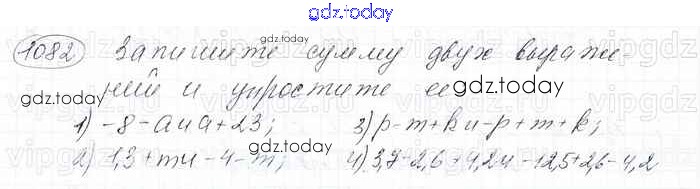 gdz.today
1082 Запишите сумму двух выраже-
ний и упростите ее
gdz.today gdz.today
1) -8-a и a+23; 3) p-m+k и -p+m+k;
2) 1,3+m и -4-m; 4) 3,7-2,6+4,2 и -12,5+2,6-4,2
gdz.today gdz.today